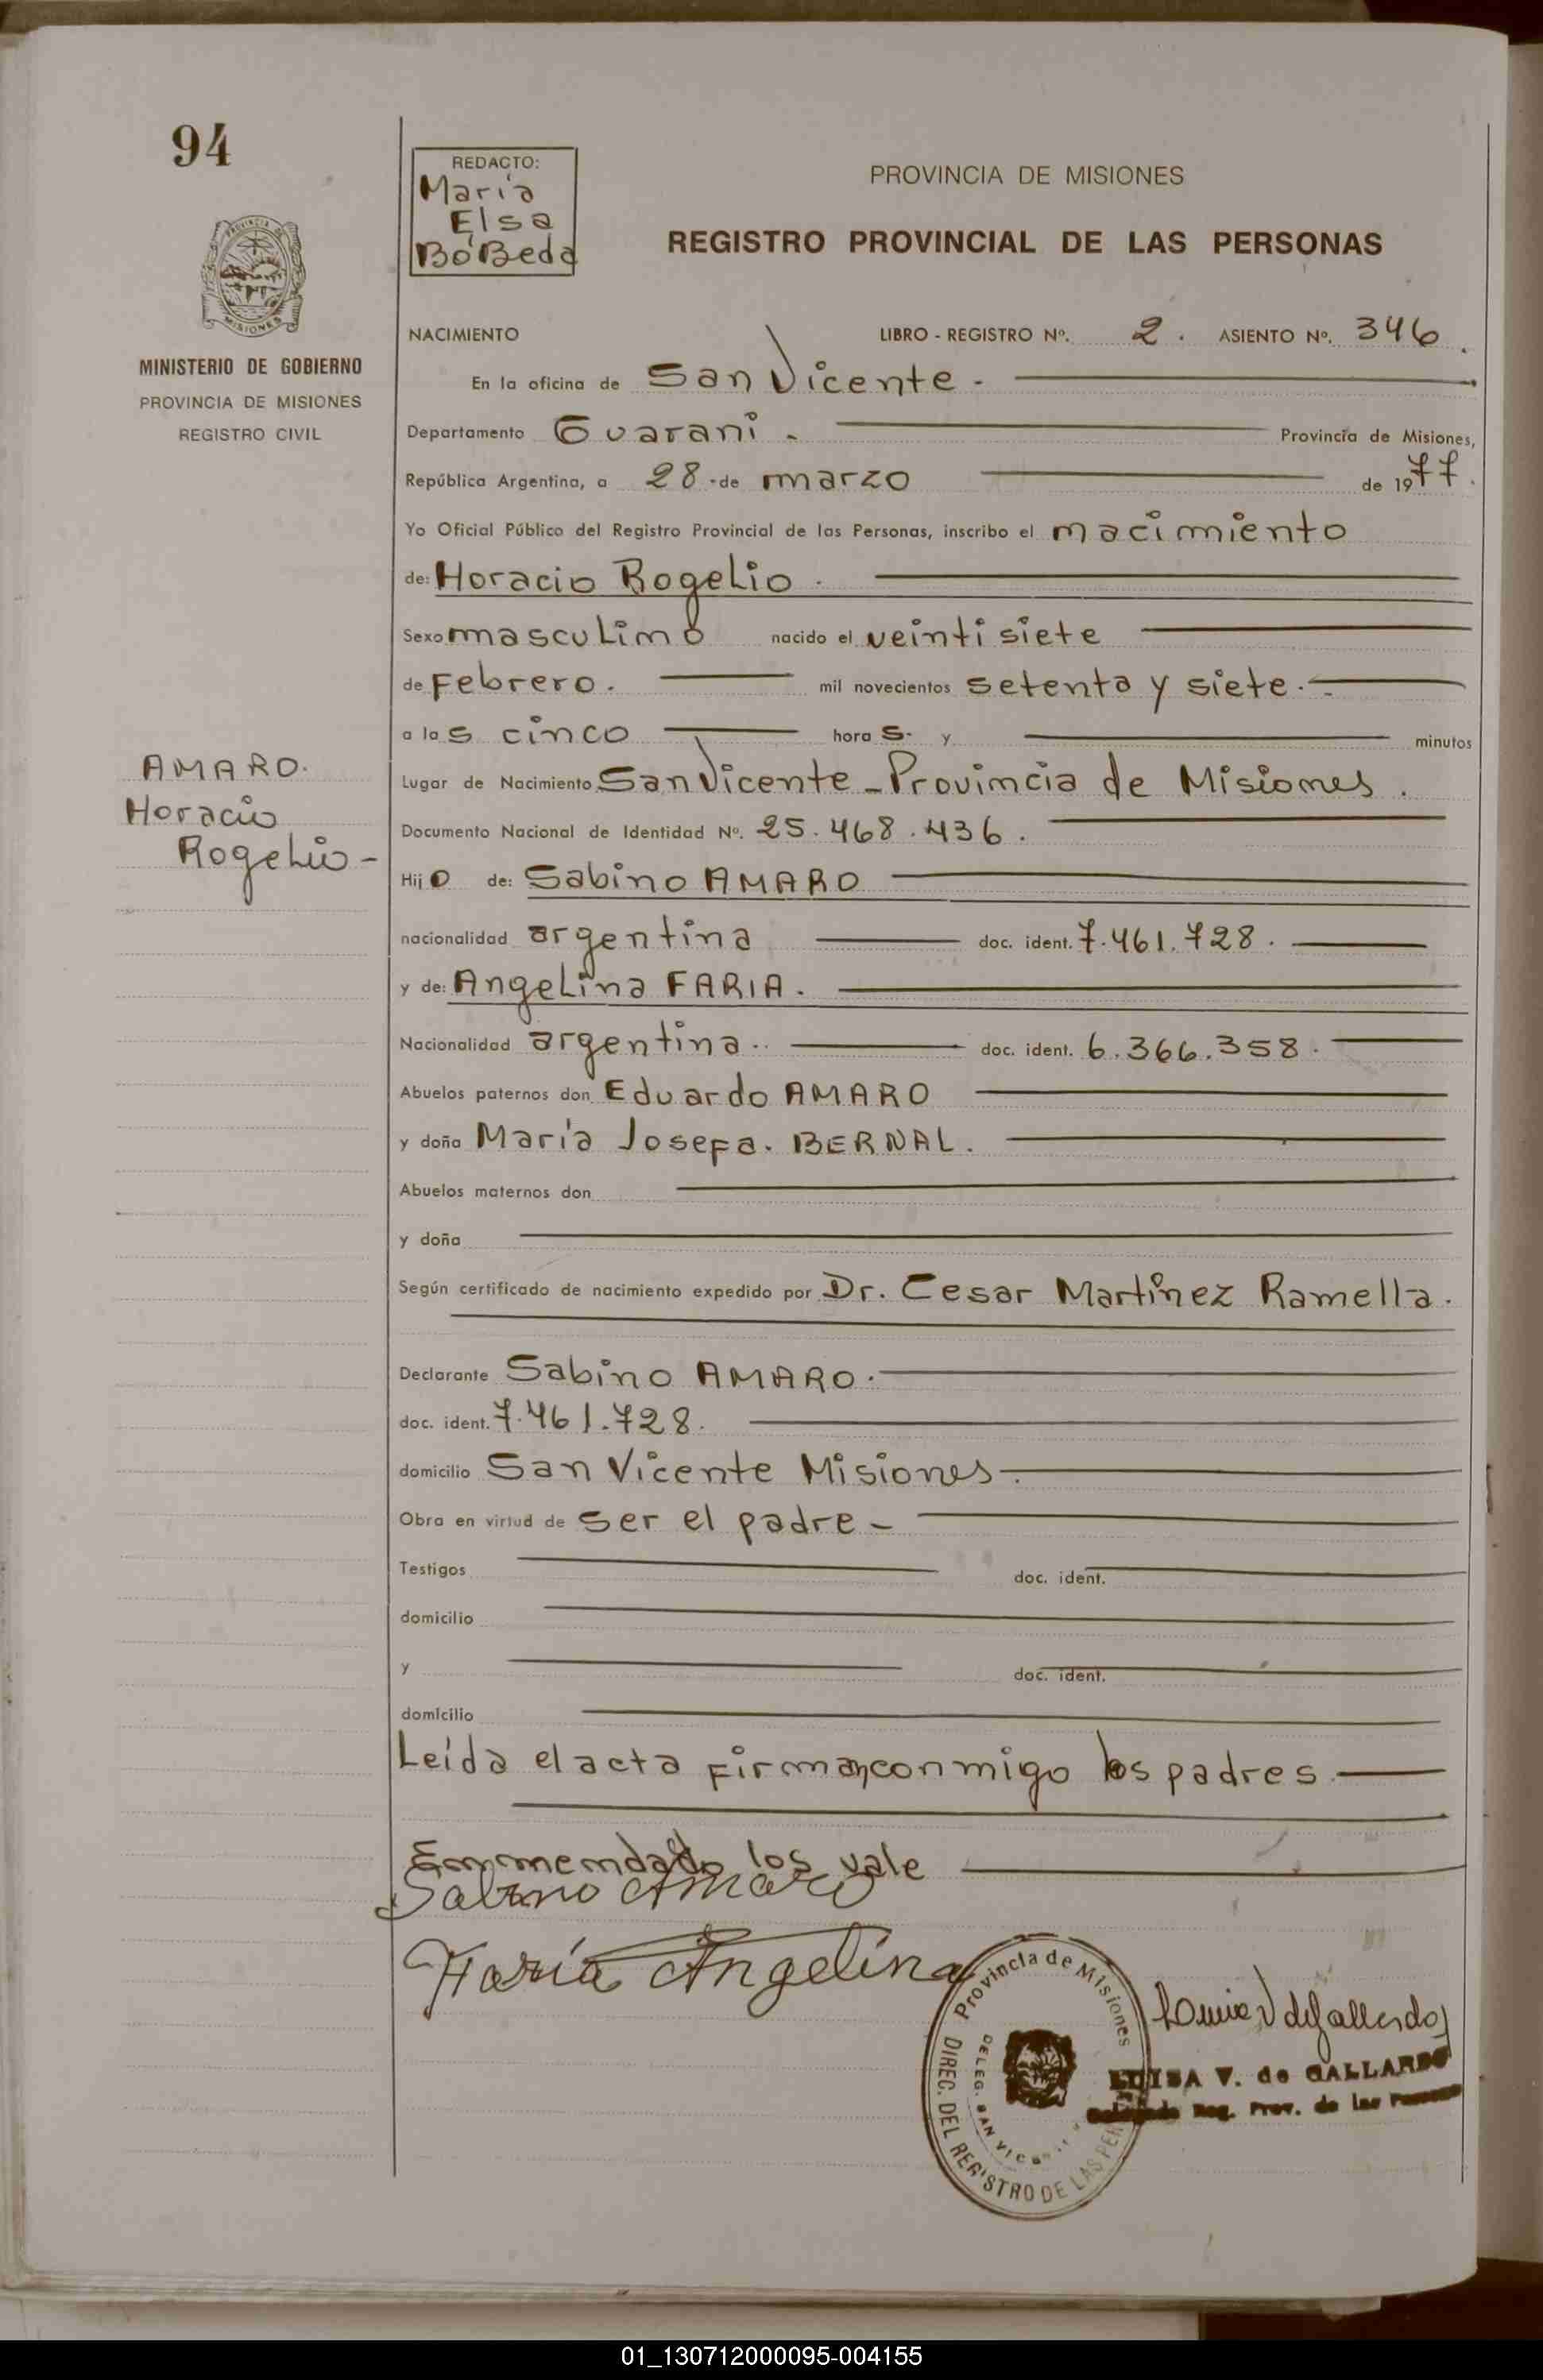 94
REDACTO:
María
Elsa
BóBeda
PROVINCIA DE MISIONES
REGISTRO PROVINCIAL DE LAS PERSONAS
MISIONES
MINISTERIO DE GOBIERNO
PROVINCIA DE MISIONES
REGISTRO CIVIL
NACIMIENTO LIBRO - REGISTRO Nº. 2. ASIENTO Nº. 346.
En la oficina de San Vicente -
Departamento Guaraní - Provincia de Misiones,
República Argentina, a 28 - de marzo de 1977.
Yo Oficial Público del Registro Provincial de las Personas, inscribo el nacimiento
de: Horacio Rogelio.
Sexo masculino nacido el veinti siete
de Febrero. mil novecientos setenta y siete.-
a las cinco horas. y minutos
AMARO.
Horacio
Rogelio -
Lugar de Nacimiento San Vicente - Provincia de Misiones.
Documento Nacional de Identidad Nº. 25.468.436.
Hijo de: Sabino AMARO
nacionalidad argentina doc. ident. 7.461.728.
y de: Angelina FARIA.
Nacionalidad argentina.. doc. ident. 6.366.358.
Abuelos paternos don Eduardo AMARO
y doña María Josefa. BERNAL.
Abuelos maternos don
y doña
Según certificado de nacimiento expedido por Dr. Cesar Martinez Ramella.
Declarante Sabino AMARO.
doc. ident. 7.461.728.
domicilio San Vicente Misiones.
Obra en virtud de ser el padre -
Testigos doc. ident.
domicilio
y doc. ident.
domicilio
Leída el acta firman conmigo los padres.
Enmendado los vale
Sabino Amaro
Faría Angelina
Provincia de Misiones
DIREC. DEL REGISTRO DE LAS PER
DELEG. SAN VIC
LUISA V. de GALLARDO
Reg. Prov. de las Personas
01_130712000095-004155